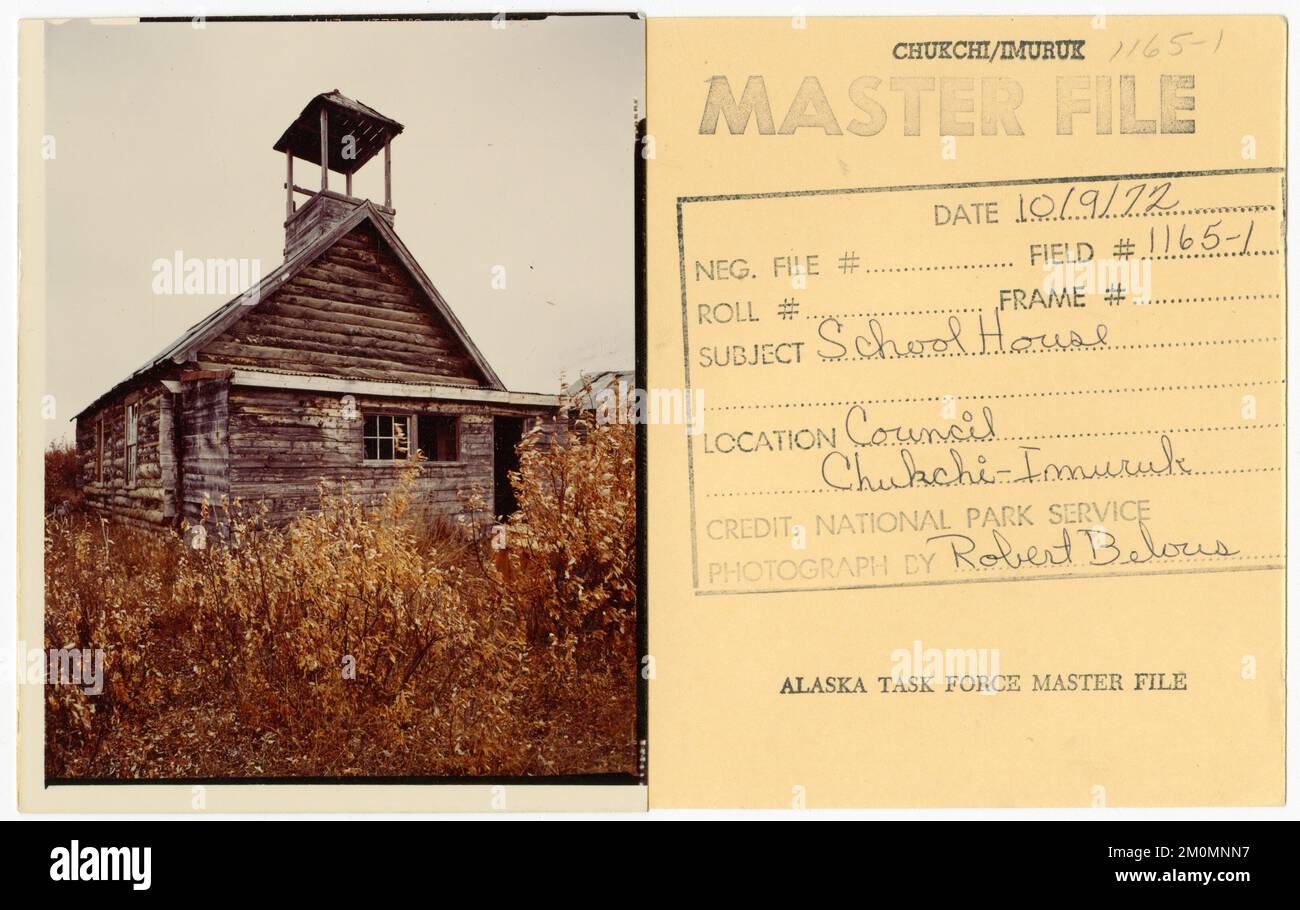 CHUKCHI/IMURUK 1165-1
MASTER FILE
DATE 10/9/72
NEG. FILE # FIELD # 1165-1
ROLL # FRAME #
SUBJECT School House
LOCATION Council
Chukchi-Imuruk
CREDIT, NATIONAL PARK SERVICE
PHOTOGRAPH BY Robert Belous
ALASKA TASK FORCE MASTER FILE
alamy
Image ID: 2M0MNN7
www.alamy.com